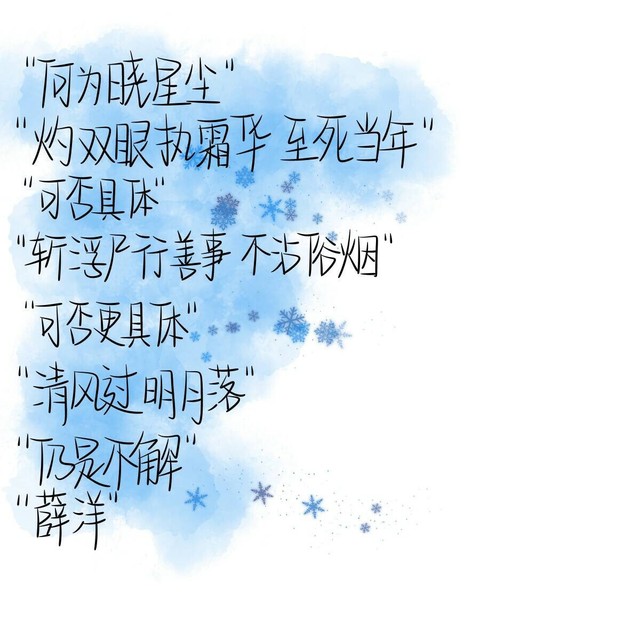 "何为晓星尘"
"灼双眼执霜华 至死当年"
"可否具体"
"斩浮尸行善事 不沾俗烟"
"可否更具体"
"清风过 明月落"
"仍是不解"
"薛洋"